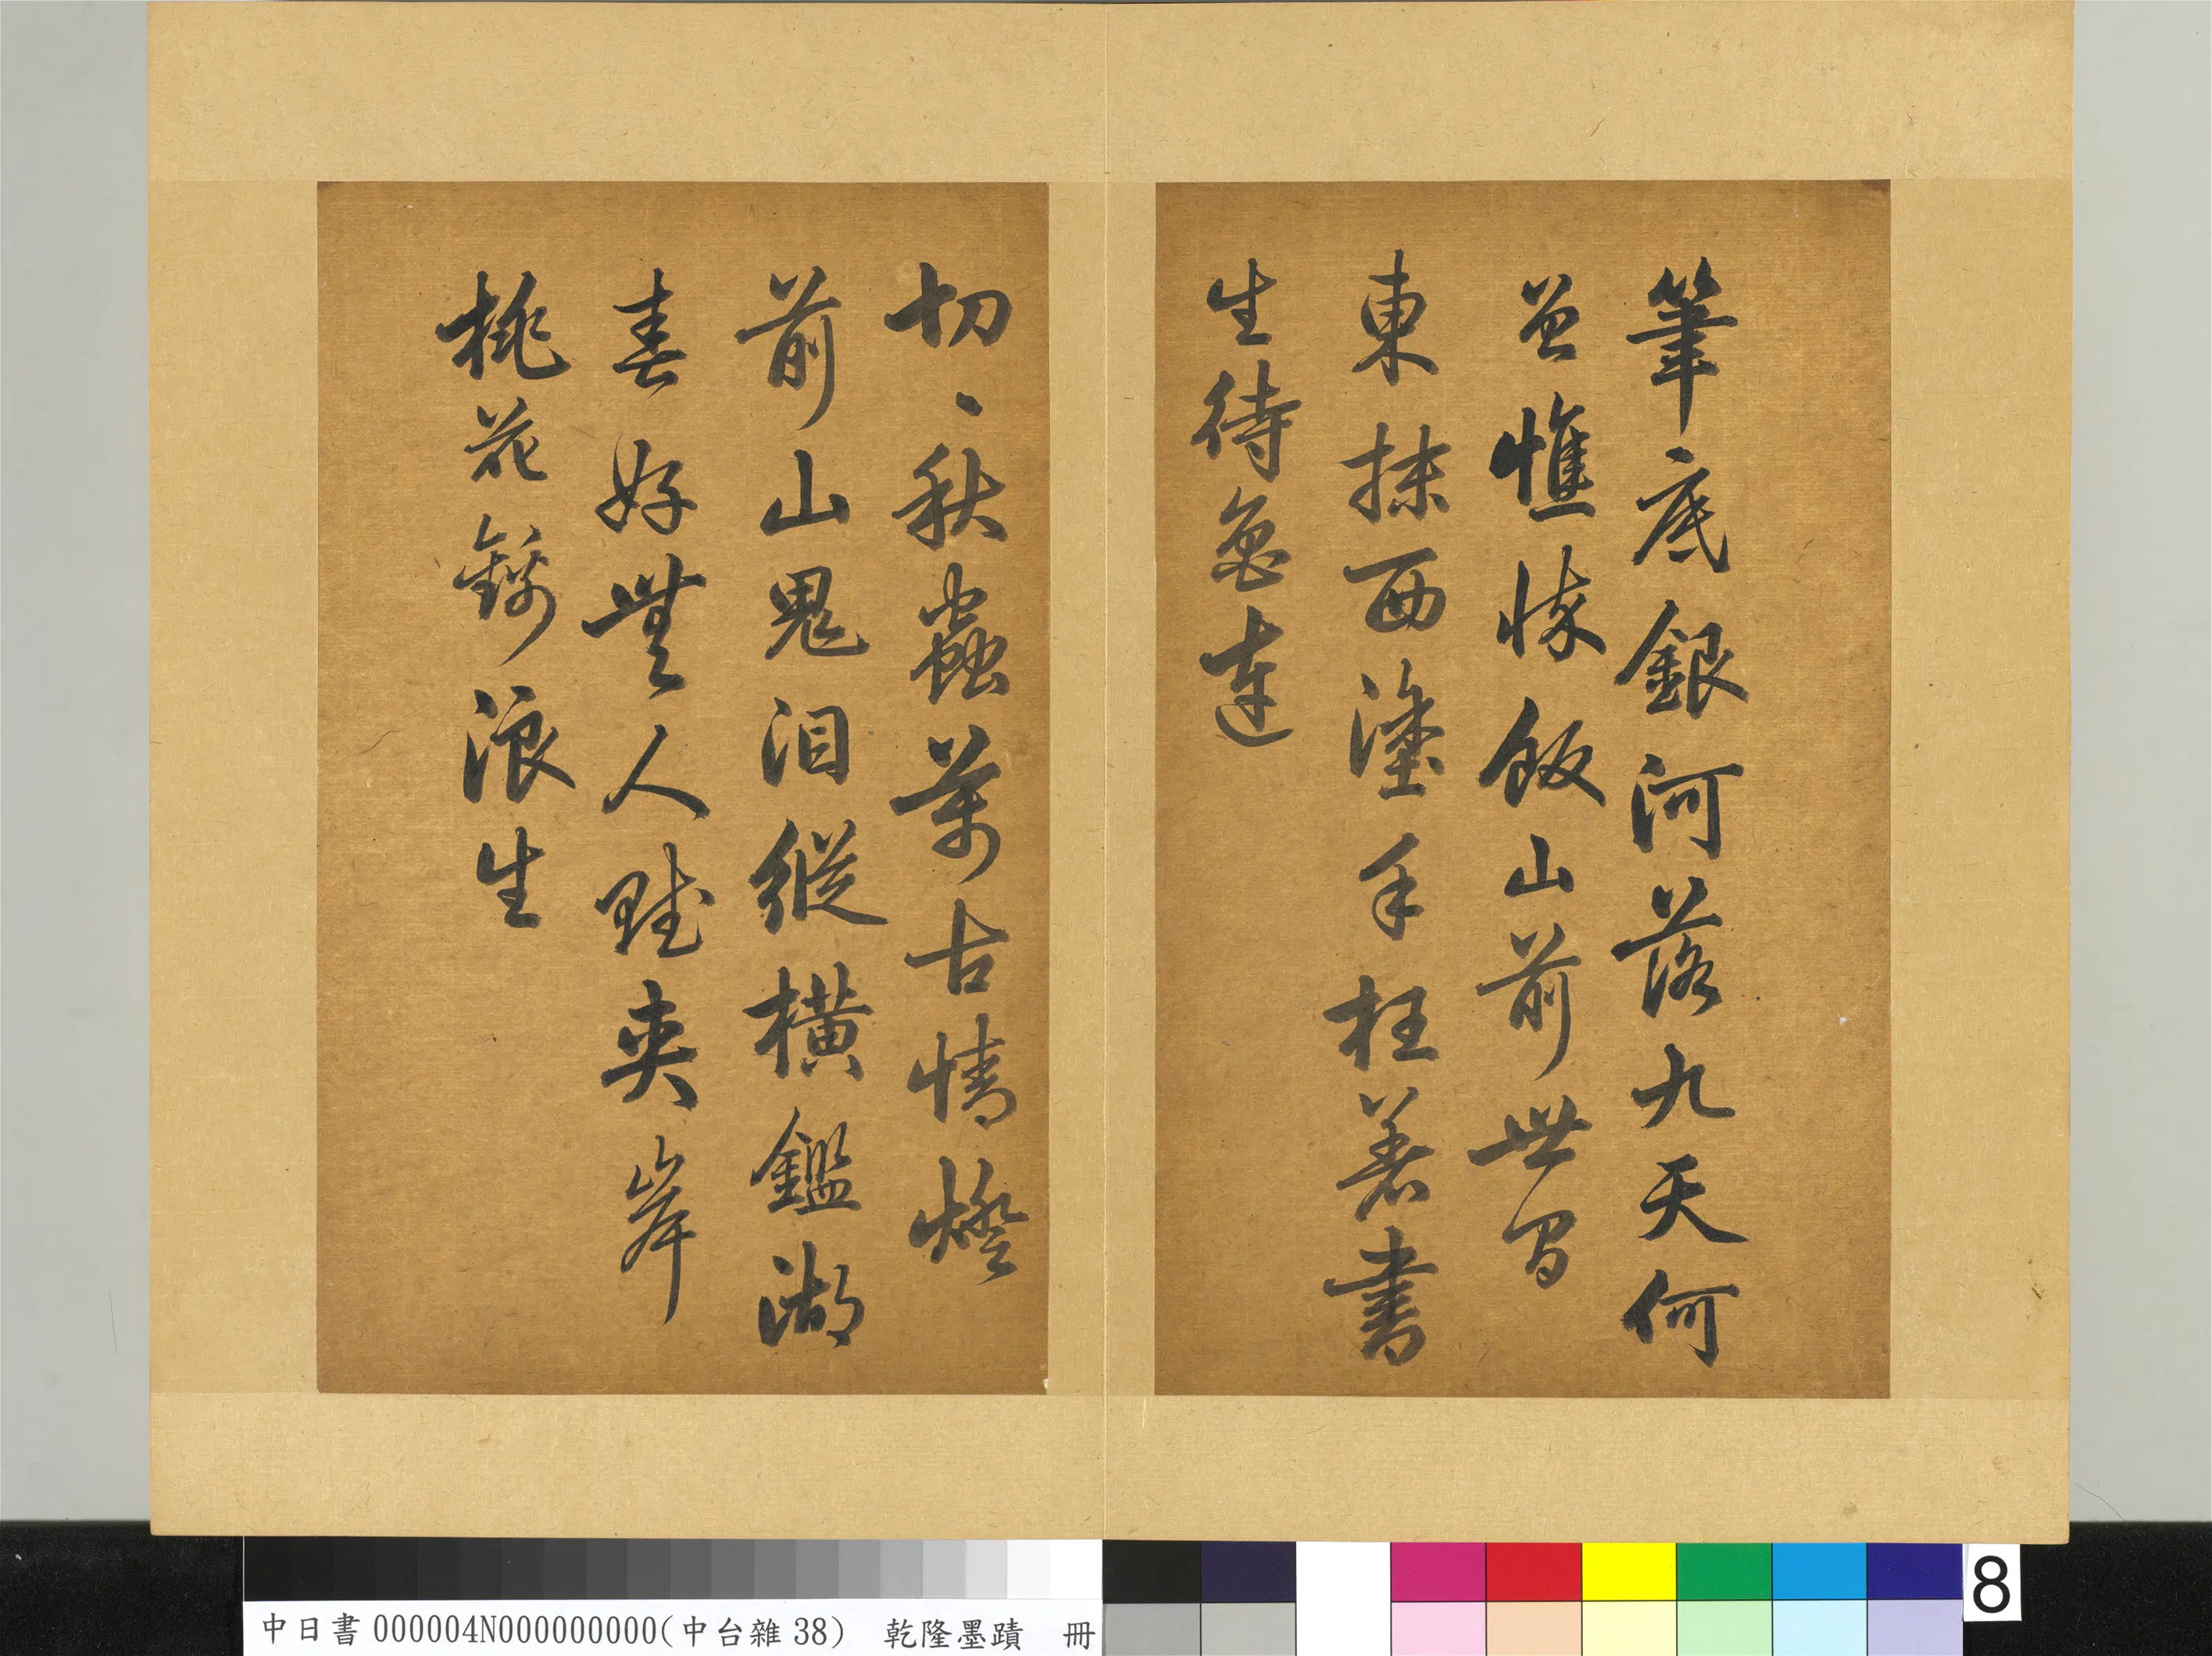 筆底銀河落九天何
曾憔悴飯山前世間
東抹西塗手枉著書
生待魯連
切、秋蟲萬古情燈
前山鬼泪縱橫鑑湖
春好無人賦夾岸
桃花錦浪生
8
中日書000004N000000000(中台雜38) 乾隆墨蹟 冊